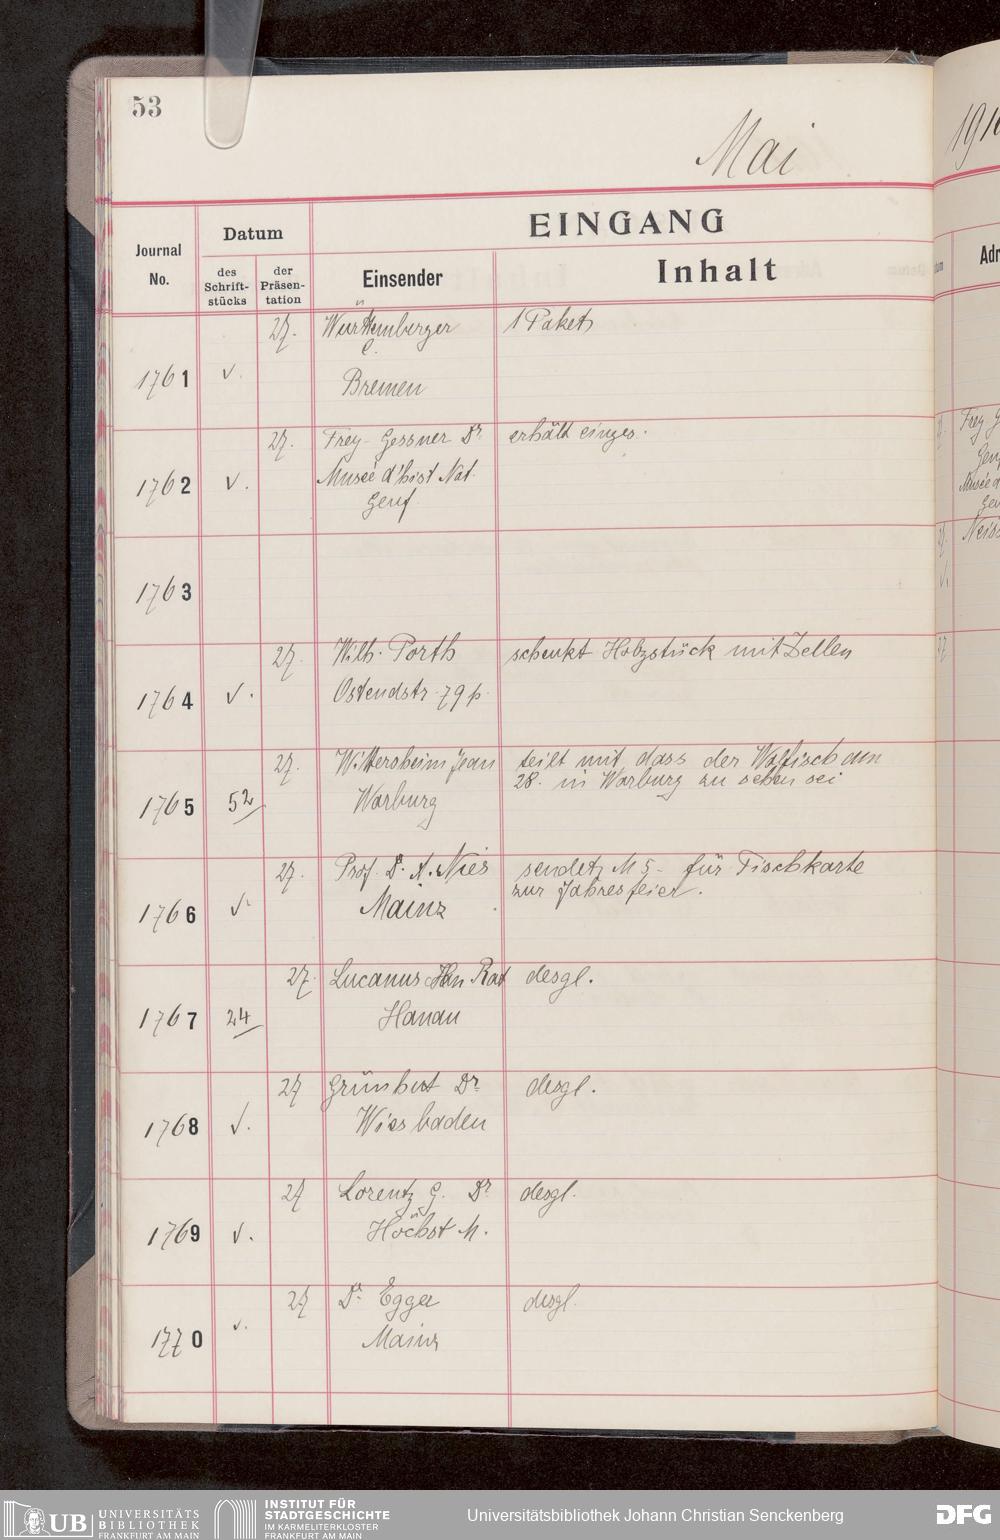 53
Mai
191
EINGANG
Journal No.
Datum
des Schrift-stücks
der Präsen-tation
Einsender
Inhalt
Adr
1761
v.
27.
Württemberger
C.
Bremen
1 Paket
1762
v.
27.
Frey-Gessner Dr.
Museé d'hist Nat.
Genf
erhält einges.
Frey G
Museé d
1763
Neiss
1764
v.
27.
Wilh. Porth
Ostendstr. 79 p.
schenkt Holzstück mit Zellen
27
1765
52
27.
Wittersheim Jean
Warburg
teilt mit dass der Walfisch am
28. in Warburg zu sehen sei
1766
v.
27.
Prof. Dr. A. Nies
Mainz
sendet M 5.- für Tischkarte
zur Jahresfeier.
1767
24
27.
Lucanus Rat
Hanau
desgl.
1768
v.
27
Grünhut Dr.
Wiesbaden
desgl.
1769
v.
27
Lorentz G. Dr.
Höchst M.
desgl.
1770
v.
27
Dr. Egger
Mainz
desgl.
UB UNIVERSITÄTS
BIBLIOTHEK
FRANKFURT AM MAIN
INSTITUT FÜR
STADTGESCHICHTE
IM KARMELITERKLOSTER
FRANKFURT AM MAIN
Universitätsbibliothek Johann Christian Senckenberg
DFG